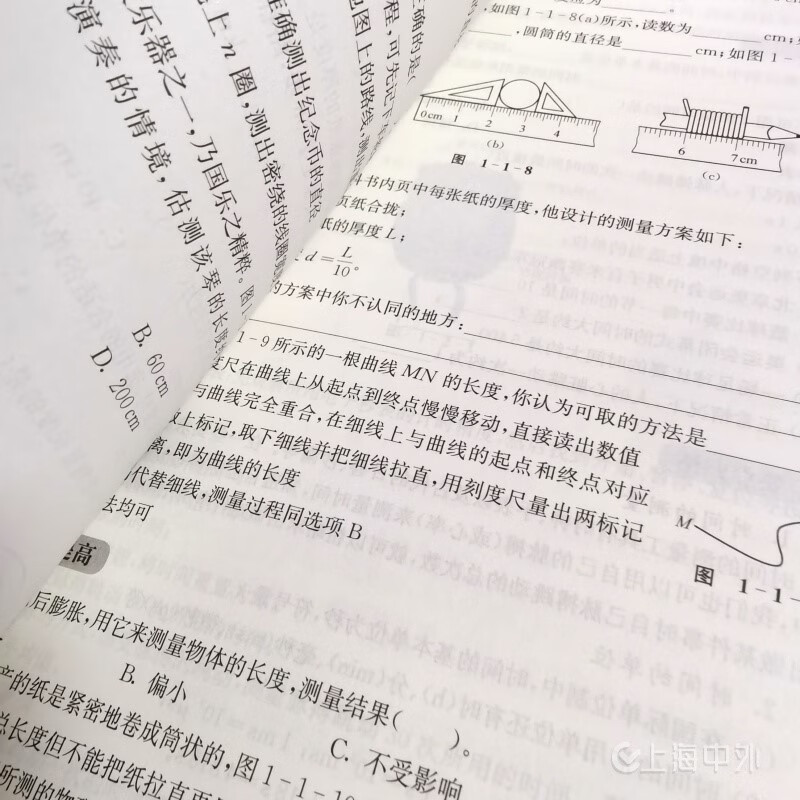 正确的是(
程,可先记下
包图上的路线,测
准确测出纪念币的直径
上n圈,测出密绕的线圈
乐器之一,乃国乐之精粹。图
演奏的情境,估测该琴的长度
B. 60 cm
D. 200 cm
,如图1-1-8(a)所示,读数为 cm;
,圆筒的直径是 cm;如图1-
0cm 1 2 3 4
(b)
6 7cm
(c)
图 1-1-8
书内页中每张纸的厚度,他设计的测量方案如下:
页纸合拢;
纸的厚度L;
d=L/10。
的方案中你不认同的地方:
1-9所示的一根曲线MN的长度,你认为可取的方法是
度尺在曲线上从起点到终点慢慢移动,直接读出数值
与曲线完全重合,在细线上与曲线的起点和终点对应
上标记,取下细线并把细线拉直,用刻度尺量出两标记
离,即为曲线的长度
代替细线,测量过程同选项B
法均可
M
图 1-1-
提高
后膨胀,用它来测量物体的长度,测量结果( )。
B. 偏小
C. 不受影响
产的纸是紧密地卷成筒状的,图1-1-10
总长度但不能把纸拉直再
所测的物
上海中外